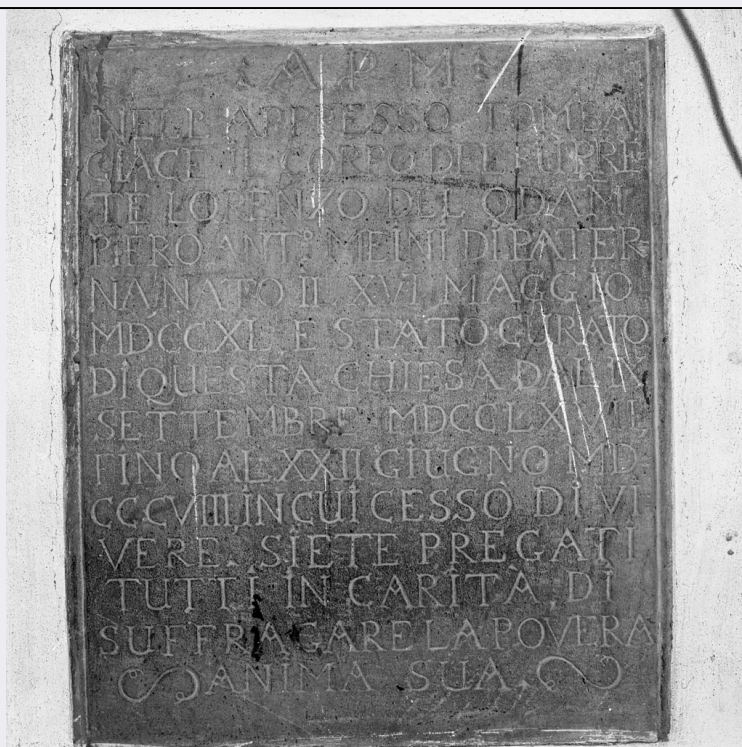 A P M
NELL APPRESSO TOMBA
GIACE IL CORPO DEL FÙ PRE
TE LORENZO DEL QDAM
PIERO ANTº MEINI DI PATER
NA, NATO IL XVI MAGGIO
MDCCXL, E STATO CURATO
DI QUESTA CHIESA DAL IX
SETTEMBRE
FINO AL XXII GIUGNO MD
CCCVIII, IN CUI CESSÒ DI VI
VERE. SIETE PREGATI
TUTTI IN CARITÀ, DI
SUFFRAGARE LA POVERA
ANIMA SUA.